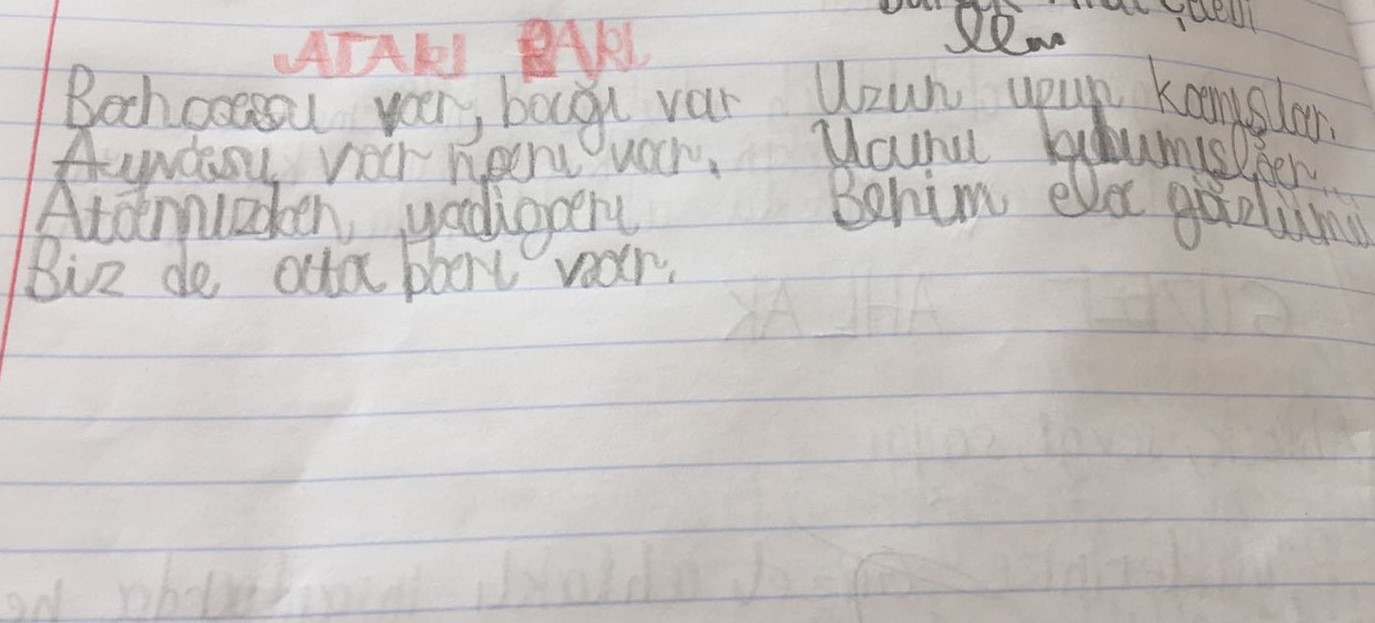 ATAKI PARI
Bahcası var, bağı var
Aynası var narı var.
Atamızken yadigarı
Biz de atta barı var.
llm
Uzun uzun kamışlar.
Ucunu bubumışlar..
Benim ela gözlümü